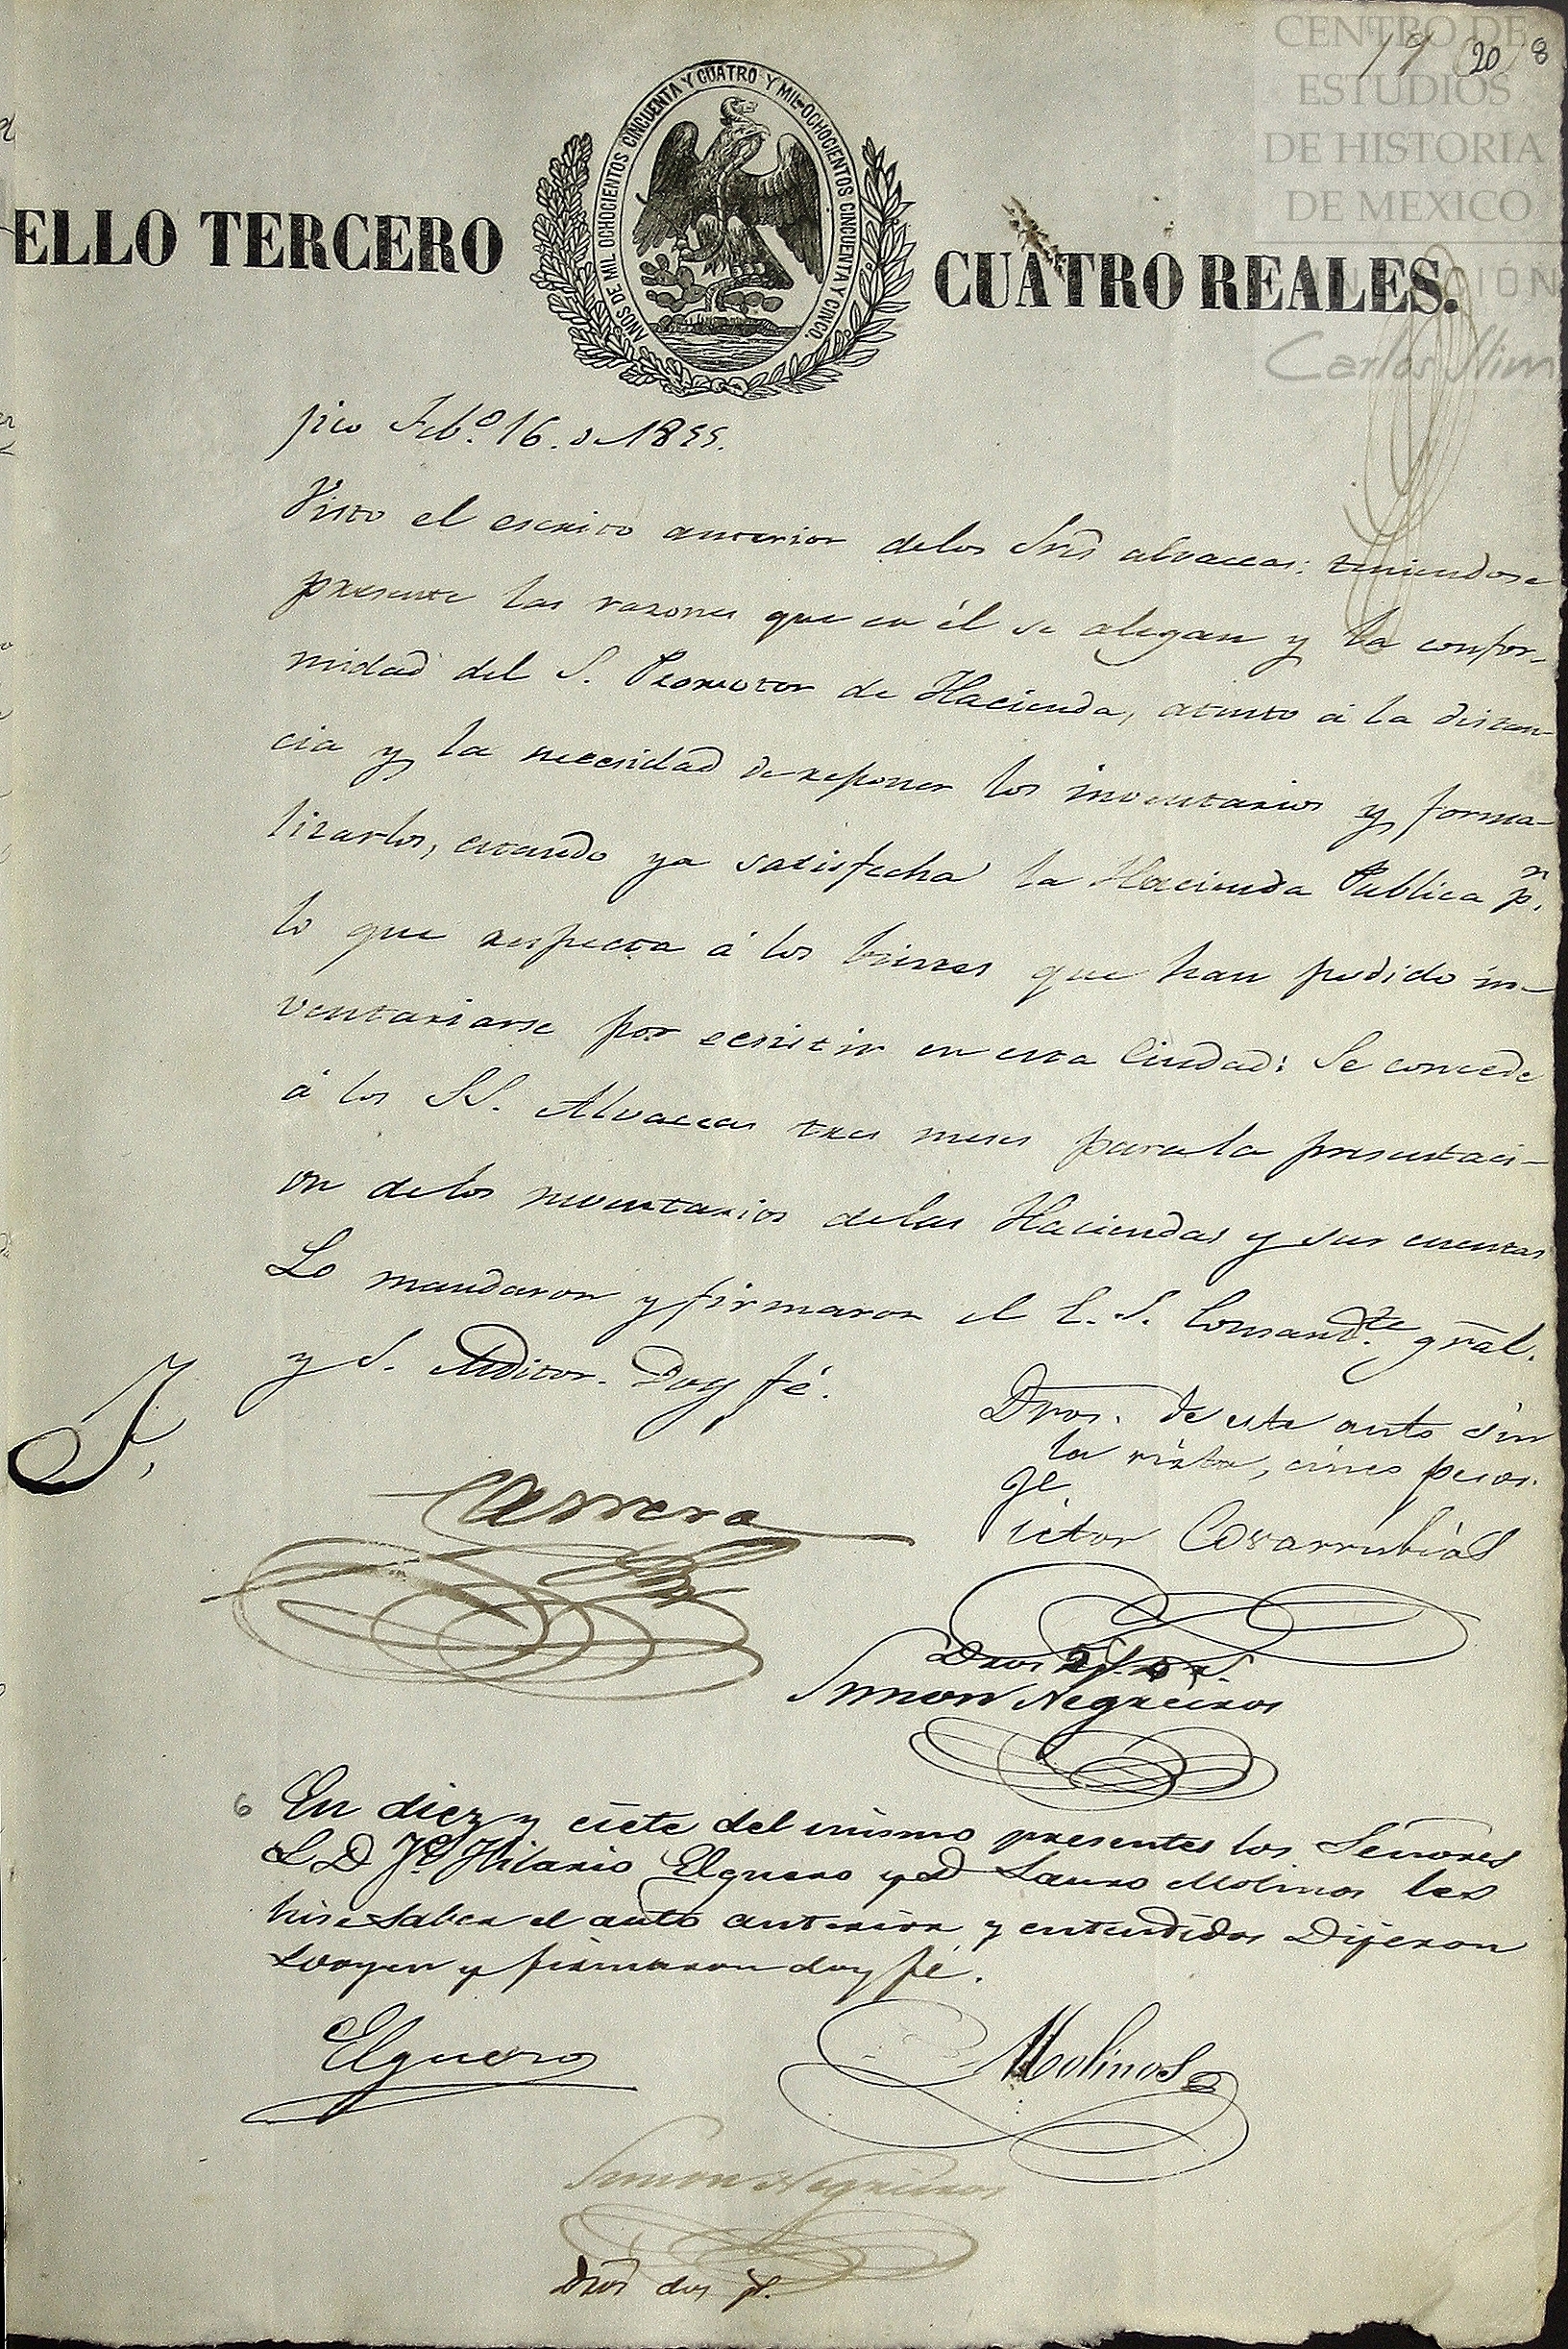 CENTRO DE
ESTUDIOS
DE HISTORIA
DE MEXICO
Carlos Slim
19 20 8
ELLO TERCERO
AÑOS DE MIL OCHOCIENTOS CINCUENTA Y CUATRO Y MIL OCHOCIENTOS CINCUENTA Y CINCO.
CUATRO REALES.
Feb.º 16. de 1855.
Visto el escrito anterior delos Sres alvaceas: teniendose
presente las razones que en él se alegan y la confor-
midad del S. Promotor de Hacienda, atento á la distan-
cia y la necesidad de reponer los inventarios y forma-
lizarlos, estando ya satisfecha la Hacienda Publica p.r
lo que respecta á los bienes que han podido in-
ventariarse por ecsistir en esta Ciudad: Se concede
á los SS. Alvaceas tres meses para la presentaci-
on delos inventarios delas Haciendas y sus cuentas
Lo mandaron y firmaron el E. S. Comand.te gral.
y S. Auditor. Doy fé.
Dros. de este auto sin
la vista, cinco pesos.
Carrera
Victor Covarrubias
Dros
Simon Negreiros
6 En diez y ciete del mismo presentes los Señores
L D Jé Hilario Elguero y D Lauro Molinos les
hise saber el auto anterior y entendidos Dijeron
lo oyen y firmaron doy fé.
Elguero
Molinos
Simon Negreiros
Dros dos p.